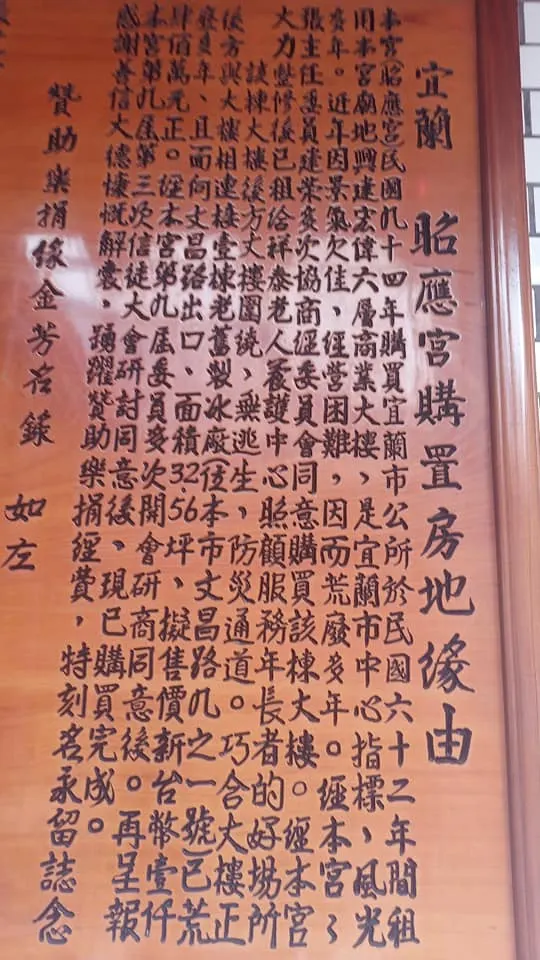 宜蘭 昭應宮購置房地緣由
本宮(昭應宮)民國九十四年購買宜蘭市公所於民國六十二年間租
用本宮廟地興建宏偉六層商業大樓，是宜蘭市中心指標，風光
多年。近年因景氣欠佳，經營困難，因而荒廢多年。經本宮
張主任委員建榮多次協商經委員會同意購買該棟大樓。經本宮
大力整修後已租給祥泰老人養護中心照顧服務年長者的好場所
該棟大樓後方大樓圍繞，無逃生，防災通道。巧合大樓正
後方與大樓相連接壹棟老舊製冰廠(位本市文昌路九之一號)已荒
廢多年、且面向文昌路出口，面積32.56坪，擬售價新台幣壹仟
肆佰萬元正。經本宮第九屆委員多次開會研商同意後。再呈報
本宮第九屆第三次信徒大會研討同意後、現已購買完成。
感謝善信大德慷慨解囊，踴躍贊助樂捐經費，特刻名永留誌念
贊助樂捐緣金芳名錄 如左